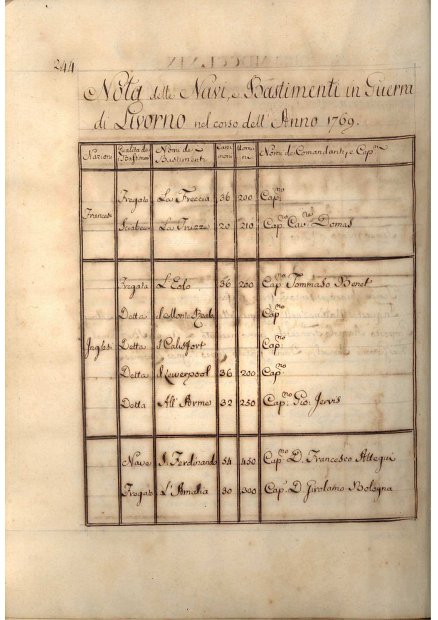 244
Nota delle Navi, e Bastimenti in Guerra
di Livorno nel corso dell'Anno 1769.
Nazione Nomi de Bastimenti Cannoni Nomi de Comandanti, e Cap.ⁿⁱ
Francesi Fregata La Freccia 36 200 Cap.ⁿᵒ
La Truzze 20 210 Cap.ⁿᵒ Cav.ʳᵉ Domas
Fregata L'Eolo 36 200 Cap.ⁿᵒ Tommaso Benet
Detta Cap.ⁿᵒ
Inglesi Detta Cap.ⁿᵒ
Detta 36 200 Cap.ⁿᵒ
Detta All'Arme 32 250 Cap.ⁿᵒ Gio: Jervis
Nave S. Ferdinando 54 450 Cap.ⁿᵒ D. Francesco
Fregata L'Amalia 30 300 Cap.ⁿᵒ D. Girolamo Bologna